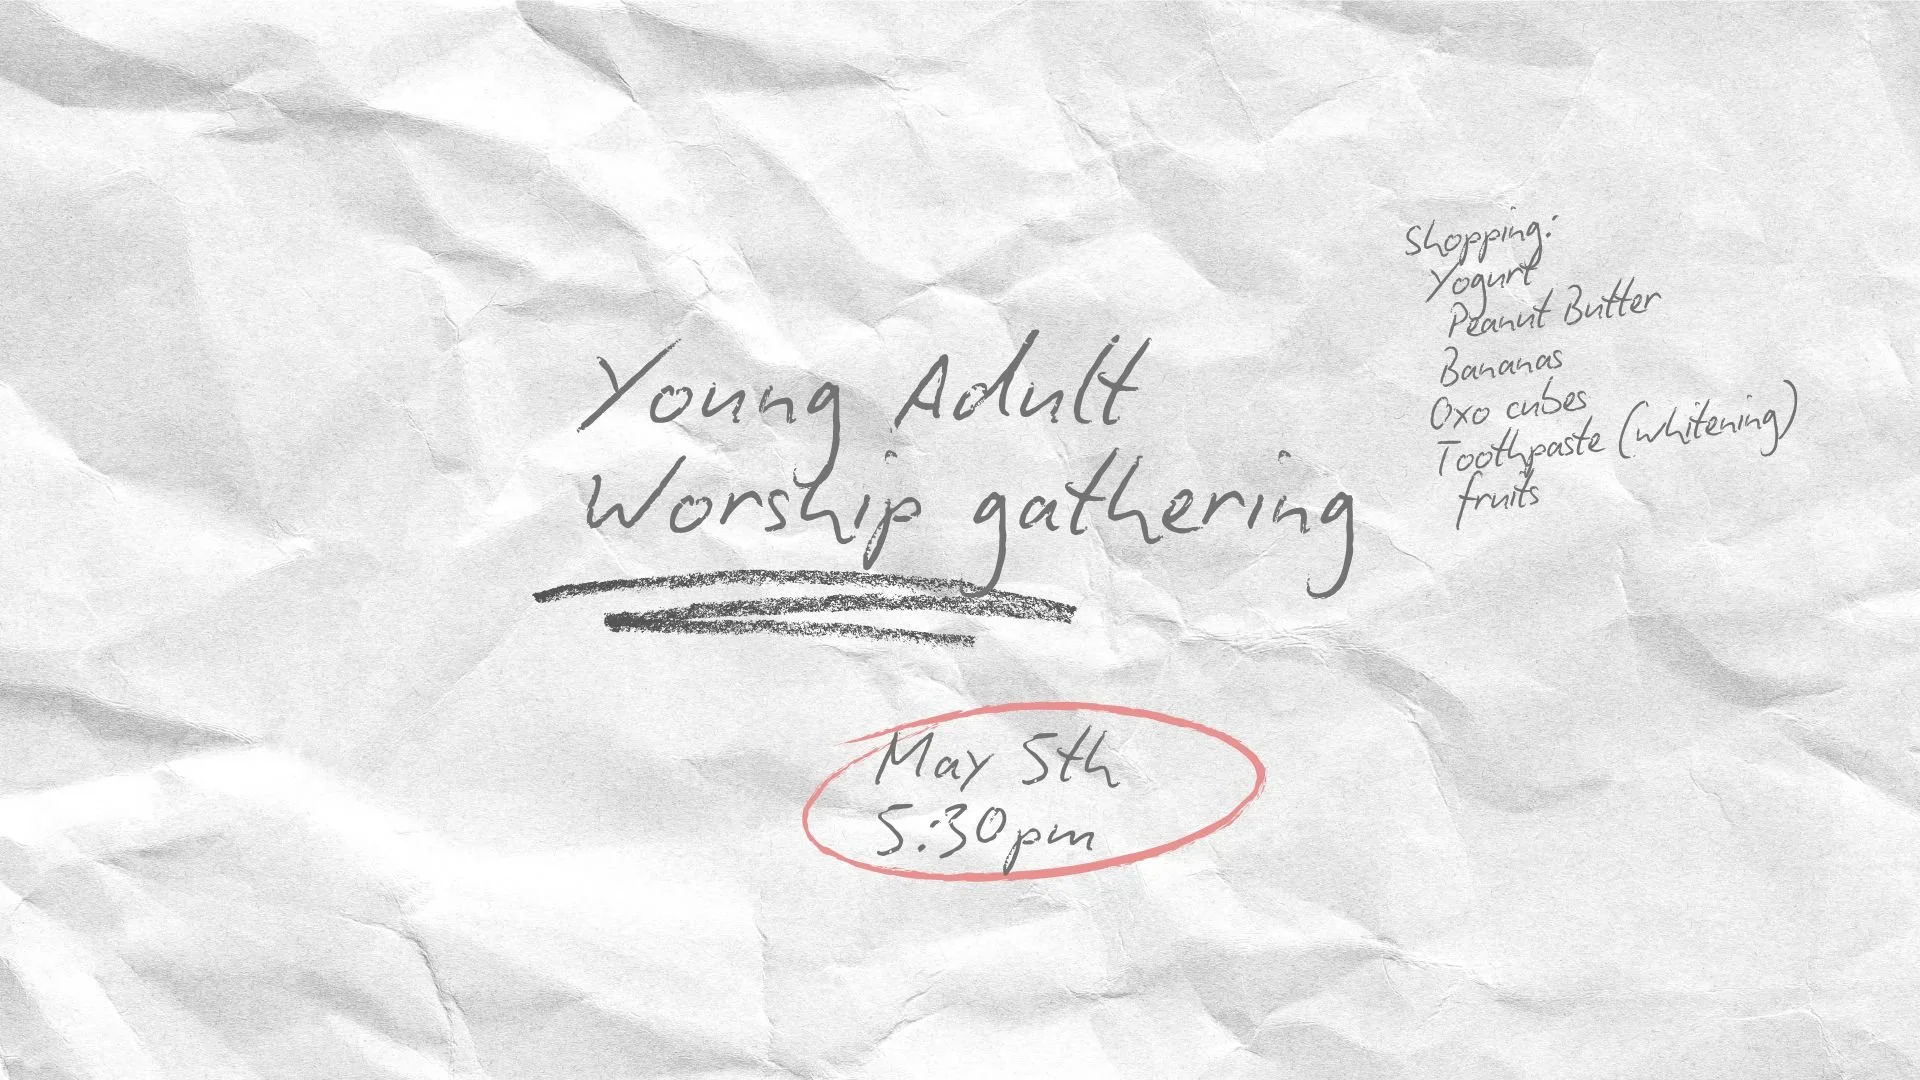 Young Adult
Worship gathering
May 5th
5:30pm
Shopping:
Yogurt
Peanut Butter
Bananas
Oxo cubes
Toothpaste (whitening)
fruits